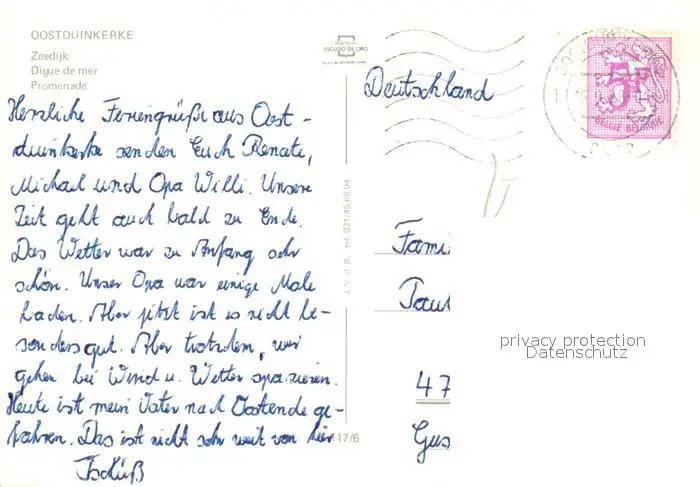 OOSTDUINKERKE
Zeedijk
Digue de mer
Promenade
POSTALES
ESCUDO DE ORO
Herzliche Feriengrüße aus Oost-
duinkerke senden Euch Renate,
Michael und Opa Willi. Unsere
Zeit geht auch bald zu Ende.
Das Wetter war zu Anfang sehr
schön. Unser Opa war einige Male
baden. Aber jetzt ist es nicht be-
sonders gut. Aber trotzdem, wir
gehen bei Wind u. Wetter spazieren.
Heute ist mein Vater nach Oostende ge-
fahren. Das ist nicht sehr weit von hier
Tschüß
J.V.d.B. tel. 031/45.68.04
117/6
Deutschland
5F
BELGIE BELGIQUE
Fami
Tau
47
Gus
privacy protection
Datenschutz